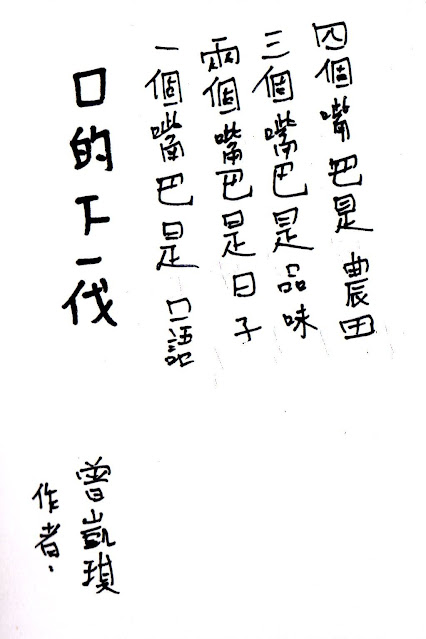 口的下一代
一個嘴巴是 口語
兩個嘴巴是日子
三個嘴巴是品味
四個嘴巴是 農田
作者、
曾凱琪